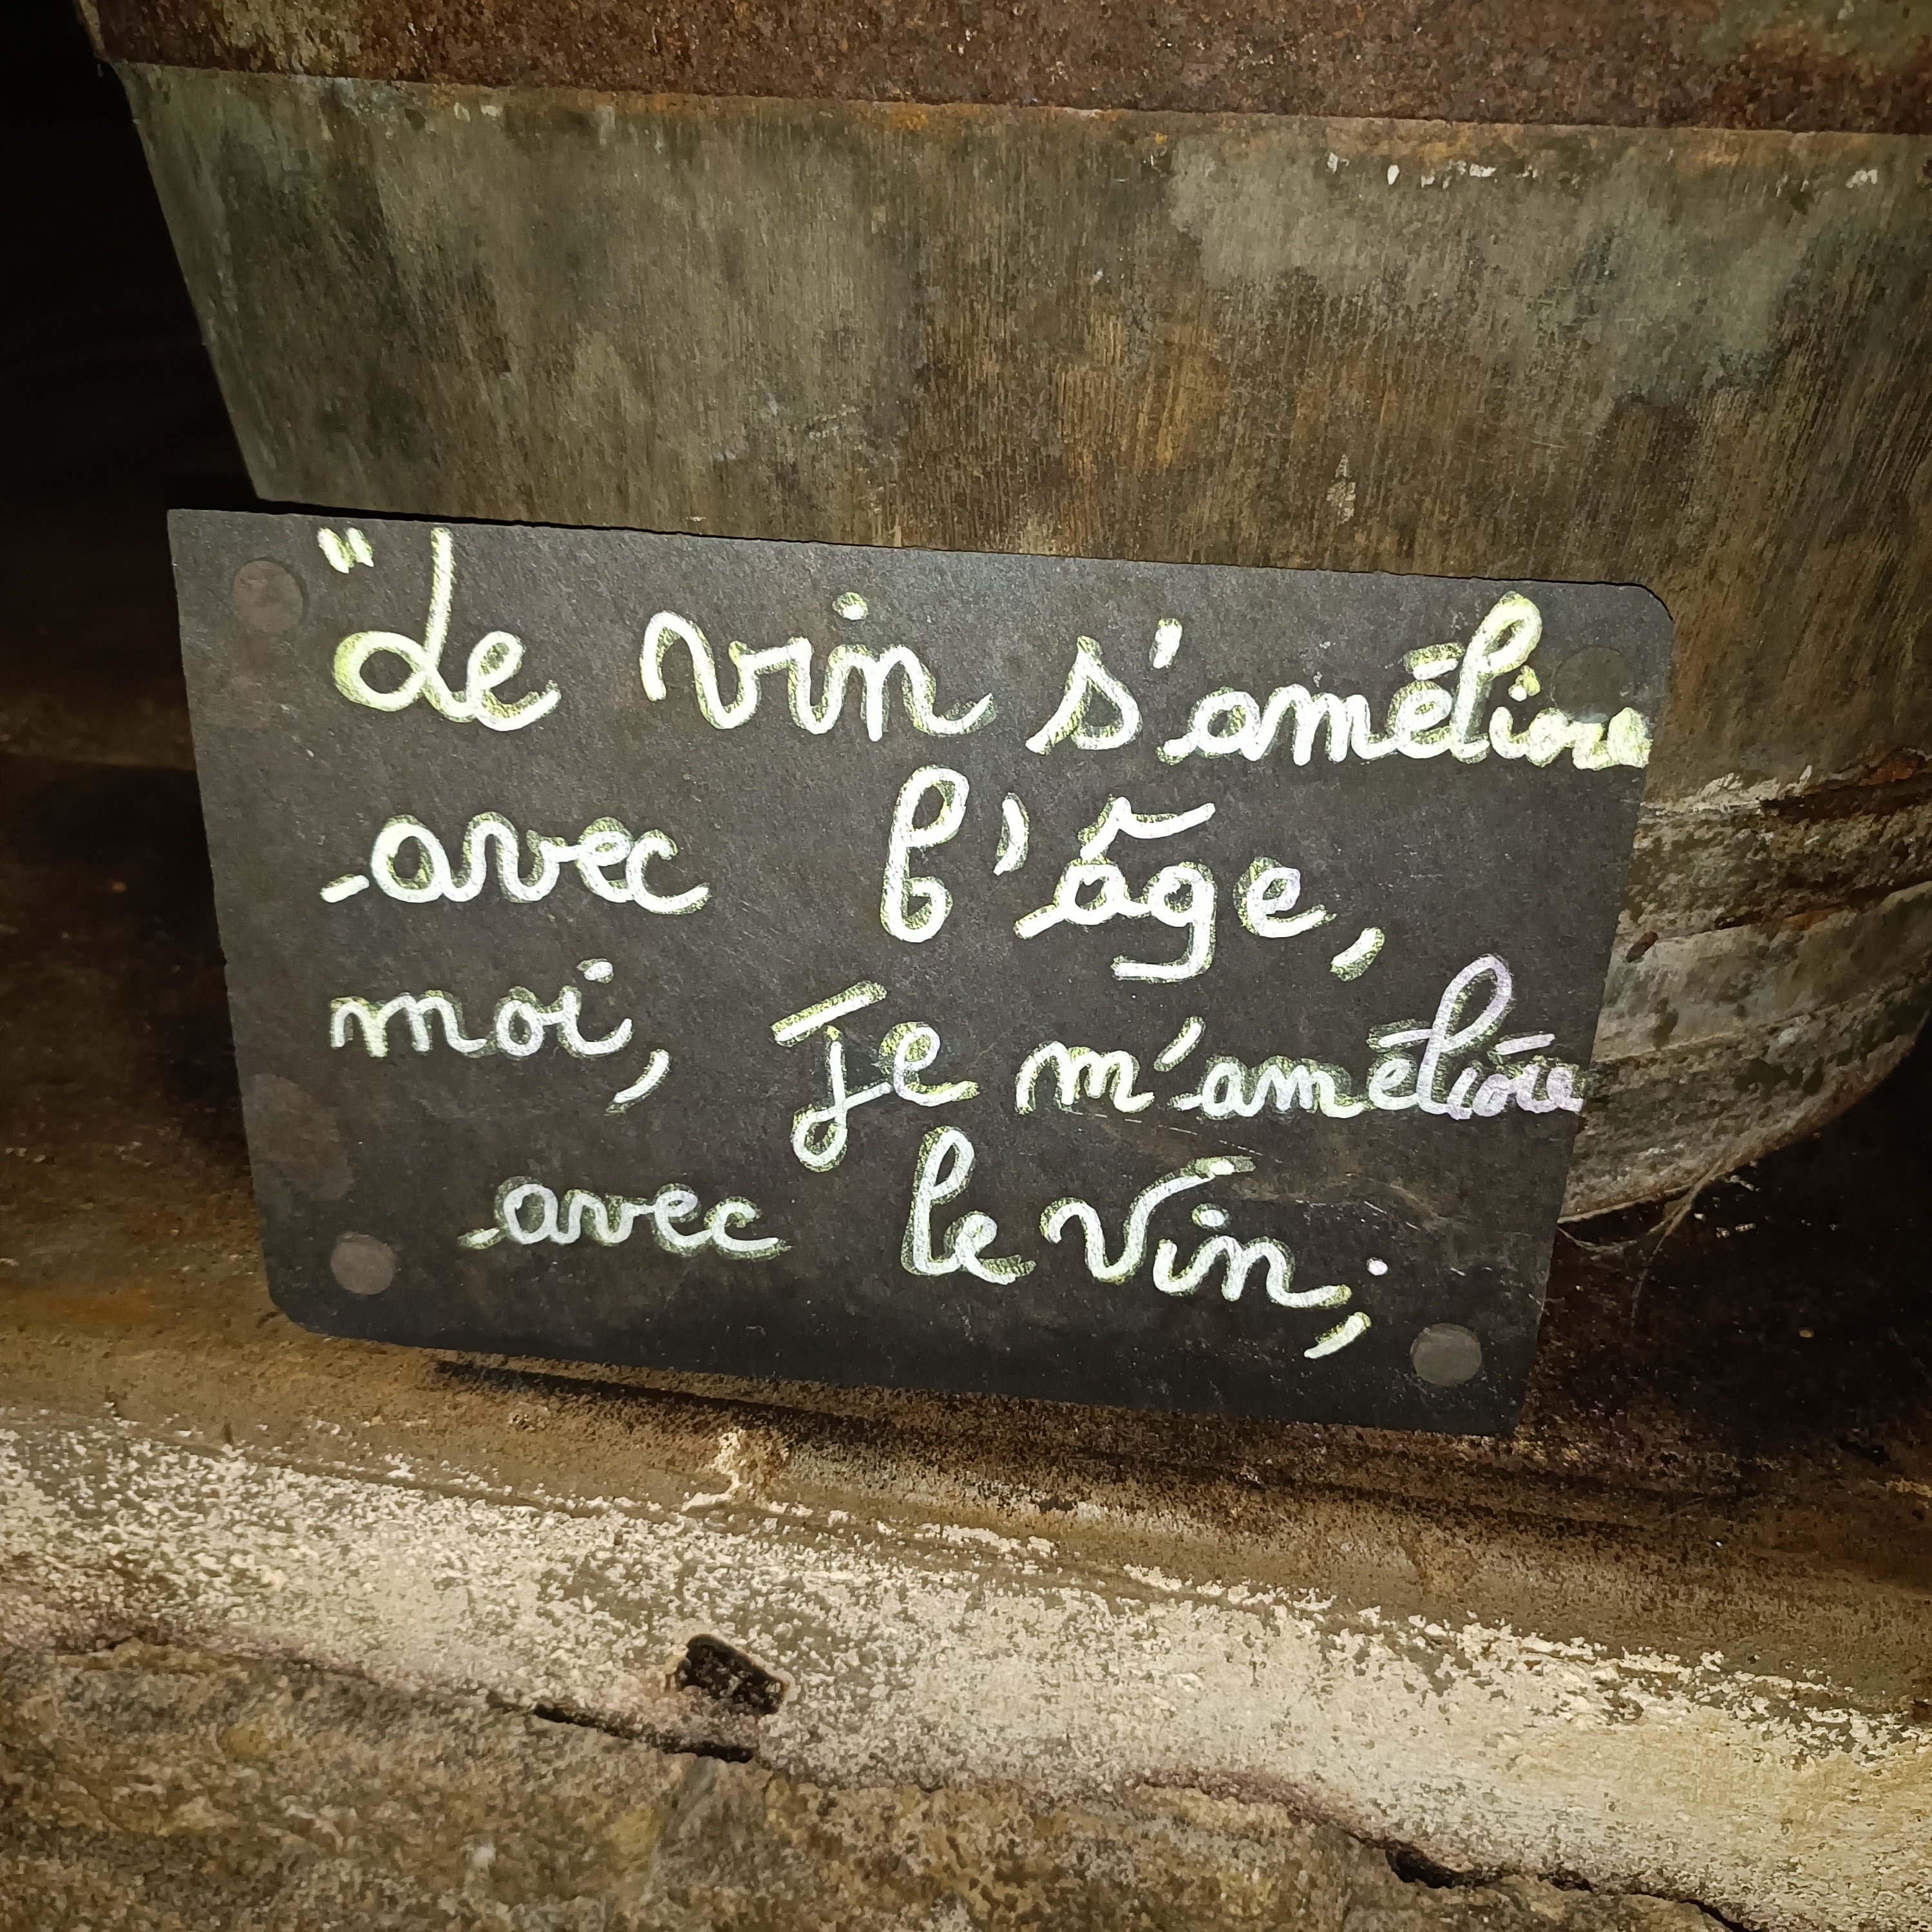 "Le vin s'améliore
avec l'âge,
moi, je m'améliore
avec le Vin,